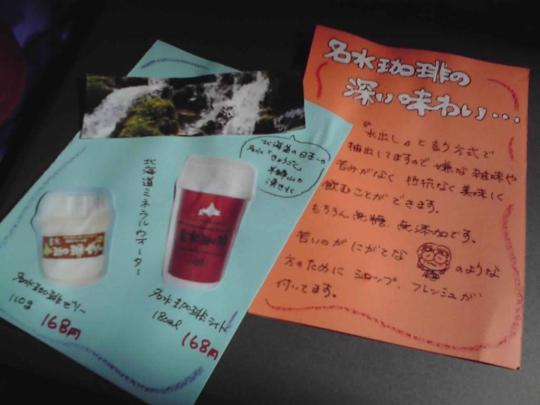 北海道の日本一の
名水「きょうごく」
羊蹄山の
湧き水
北海道ミネラルウォーター
名水珈琲ゼリー
110g
168円
名水珈琲
180ml
168円
名水珈琲の
深い味わい…
『水出し』と言う方式で
抽出してますので 嫌な雑味や
苦みがなく 抵抗なく美味しく
飲むことができます。
もちろん無糖、無添加です。
苦いのがにがてな のような
方のために シロップ、フレッシュが
付いてます。